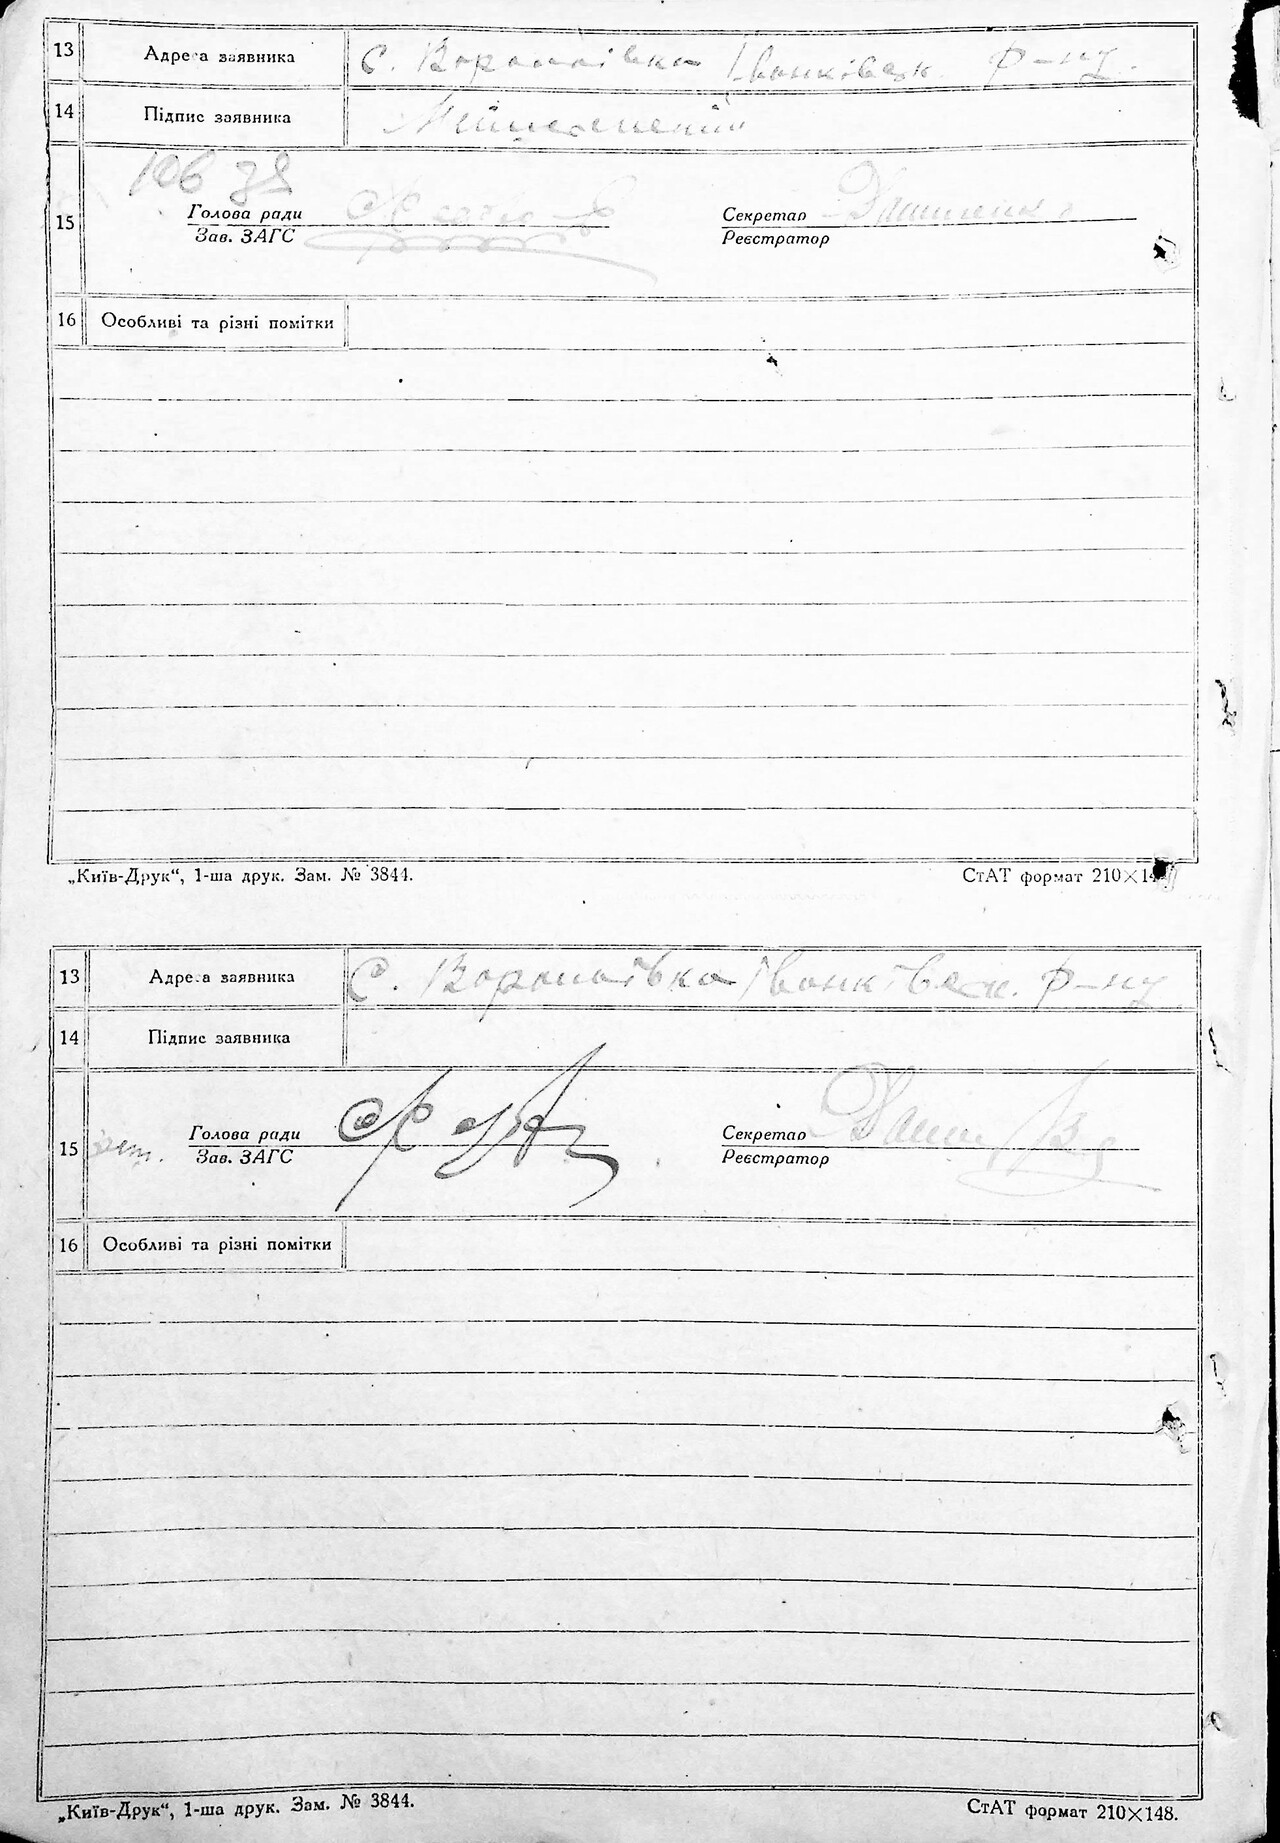 13 Адреса заявника с. Воропаївка Іванківськ. р-ну.
14 Підпис заявника
15 Голова ради Секретар
Зав. ЗАГС Реєстратор
16 Особливі та різні помітки
„Київ-Друк“, 1-ша друк. Зам. № 3844. СтАТ формат 210×14
13 Адреса заявника с. Воропаївка Іванківськ. р-ну
14 Підпис заявника
15 Голова ради Секретар
Зав. ЗАГС Реєстратор
16 Особливі та різні помітки
„Київ-Друк“, 1-ша друк. Зам. № 3844. СтАТ формат 210×148.